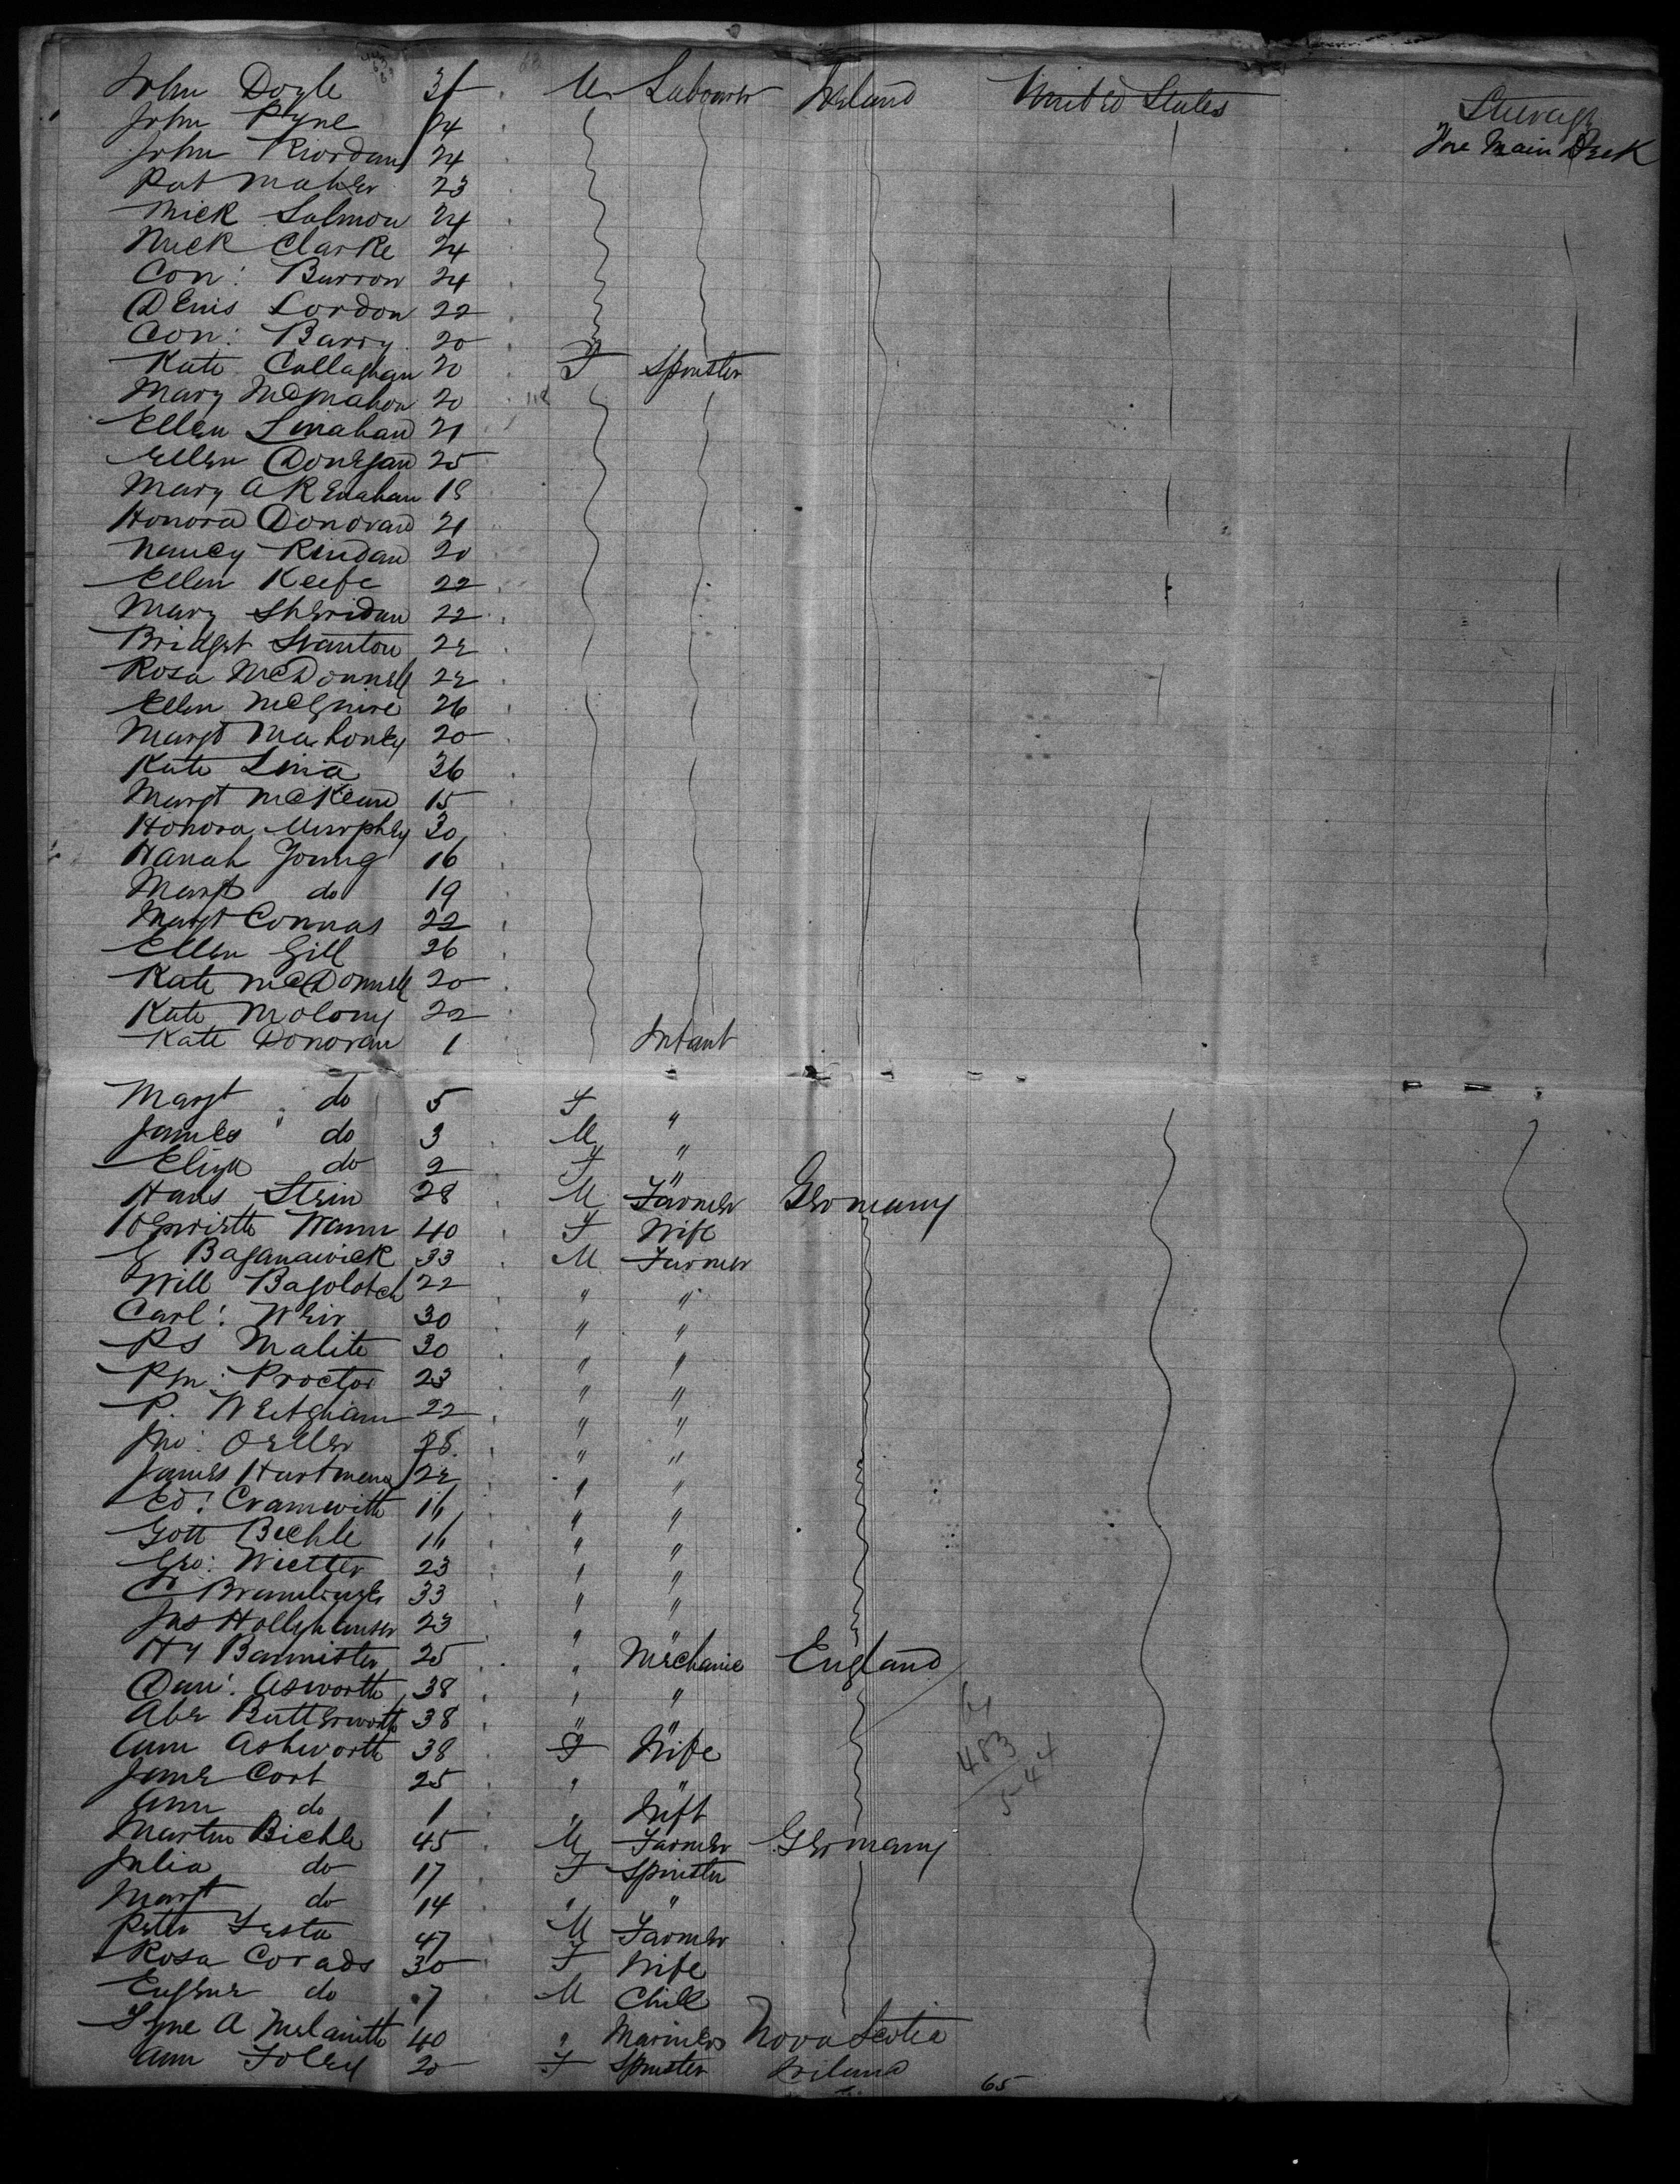 John Doyle 31 M Labourer Ireland United States Steerage
John Pyne 24 Fore Main Deck
John Riordan 24
Pat Maher 23
Mick Salmon 24
Mick Clarke 24
Con: Barron 24
Denis Lordon 22
Con: Barry 20
Kate Callaghan 20 F Spinster
Mary McMahon 20
Ellen Linahan 21
Ellen Donegan 25
Mary A Renahan 18
Honora Donovan 21
Nancy Rindan 20
Ellen Keefe 22
Mary Sheridan 22
Bridget Stanton 22
Rosa McDonnell 22
Ellen McGuire 26
Margt Mahoney 20
Kate Lina 36
Margt McKeane 15
Honora Murphy 30
Hanah Young 16
Margt do 19
Margt Connas 22
Ellen Gill 26
Kate McDonnell 20
Kate Molony 22
Kate Donovan 1 Infant
Margt do 5 F "
James do 3 M "
Eliza do 2 F "
Hans Stein 28 M Farmer Germany
Wann 40 F Wife
E Baganawick 33 M Farmer
Will Bagolotch 22 " "
Carl: Weir 30 " "
RS Malite 30 " "
Rm: Proctor 23 " "
P. Wetgham 22 " "
Jno: Oeller " "
James Hartmeng 22 " "
Ed: Cramwitte 16 " "
Gott Bechle 16 " "
Geo: Wietter 23 " "
C Bramlinger 33 " "
Jas Hollyhauser 23 " "
Hy Bannister 25 " Mechanic England
Danl. Asworth 38 " "
Abe Butterworth 38 " "
Ann Ashworth 38 F Wife
Jane Cort 25 " "
Ann do 1 " Inft
Martin Bichle 45 M Farmer Germany
Julia do 17 F Spinster
Margt do 14 " "
Peter Festa 47 M Farmer
Rosa Corads 30 F Wife
Eugene do 7 M Child
A 40 " Mariner Nova Scotia
Ann Foley 20 F Spinster Ireland
61
483
544
65